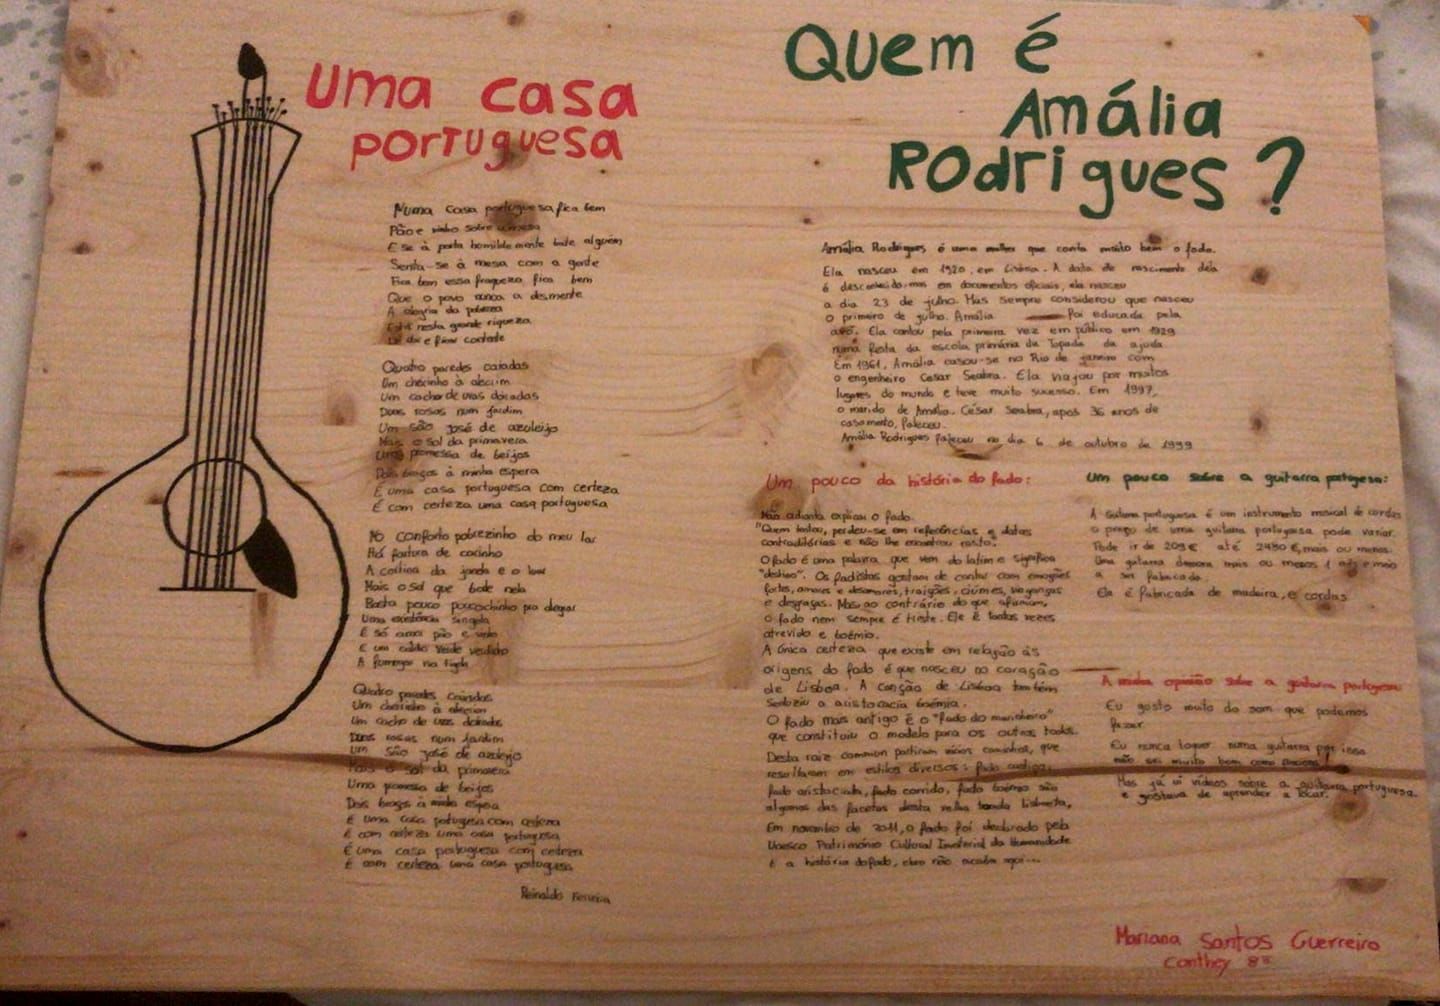 Uma casa
portuguesa
Numa casa portuguesa fica bem
Pão e vinho sobre a mesa
E se à porta humildemente bate alguém
Senta-se à mesa com a gente
Fica bem essa fraqueza fica bem
Que o povo nunca a desmente
A alegria da pobreza
Está nesta grande riqueza
De dar e ficar contente
Quatro paredes caiadas
Um cheirinho à alecrim
Um cacho de uvas doiradas
Duas rosas num jardim
Um são josé de azuleijo
Mais o sol da primavera
Uma promessa de beijos
Dois braços à minha espera
É uma casa portuguesa com certeza
É com certeza uma casa portuguesa
No conforto pobrezinho do meu lar
Há fartura de carinho
A cortina da janela e o luar
Mais o sol que bate nela
Basta pouco poucochinho pra alegrar
Uma existência singela
É só amor pão e vinho
E um caldo verde verdinho
A fumegar na tigela
Quatro paredes caiadas
Um cheirinho à alecrim
Um cacho de uvas doiradas
Duas rosas num jardim
Um são josé de azuleijo
Mais o sol da primavera
Uma promessa de beijos
Dois braços à minha espera
É uma casa portuguesa com certeza
É com certeza uma casa portuguesa
É uma casa portuguesa com certeza
É com certeza uma casa portuguesa
Reinaldo Ferreira
Quem é
Amália
Rodrigues ?
Amália Rodrigues é uma mulher que canta muito bem o fado.
Ela nasceu em 1920, em Lisboa. A data de nascimento dela
é desconhecida, mas em documentos oficiais, ela nasceu
a dia 23 de julho. Mas sempre considerou que nasceu
o primeiro de julho. Amália foi educada pela
avó. Ela cantou pela primeira vez em público em 1929
numa festa da escola primária da Tapada da ajuda
Em 1961, Amália casou-se no Rio de janeiro com
o engenheiro César Seabra. Ela viajou por muitos
lugares do mundo e teve muito sucesso. Em 1997,
o marido de Amália, César Seabra, após 36 anos de
casamento, faleceu.
Amália Rodrigues faleceu no dia 6 de outubro de 1999
Um pouco da história do fado:
Não adianta explicar o fado.
"Quem tentou, perdeu-se em referências e datas
contraditórias e não lhe encontrou rasto".
O fado é uma palavra que vem do latim e significa
"destino". Os fadistas gostam de cantar com emoções
fortes, amores e desamores, traições, ciúmes, vinganças
e desgraças. Mas ao contrário do que afirmam,
o fado nem sempre é triste. Ele é tantas vezes
atrevido e boémio.
A única certeza que existe em relação às
origens do fado é que nasceu no coração
de Lisboa. A canção de Lisboa também
seduziu a aristocracia boémia.
O fado mais antigo é o "fado do marinheiro"
que constituiu o modelo para os outros todos.
Desta raiz common partiram vários caminhos, que
resultaram em estilos diversos: fado
fado aristocrata, fado corrido, fado boémio são
algumas das facetas desta velha Lisboeta,
Em novembro de 2011, o fado foi declarado pela
Unesco Património Cultural Imaterial da Humanidade
é a história do fado, claro não acaba aqui...
Um pouco sobre a guitarra portugesa:
A Guitarra portuguesa é um instrumento musical de cordas
o preço de uma guitarra portuguesa pode variar.
Pode ir de 209€ até 2480€, mais ou menos.
Uma guitarra demora mais ou menos 1 mês e meio
a ser fabricada.
Ela é fabricada de madeira, e cordas
A minha opinião sobre a guitarra portuguesa
Eu gosto muito do som que podemos
fazer.
Eu nunca toquei numa guitarra por isso
não sei muito bem como funciona!
Mas já vi vídeos sobre a guitarra portuguesa.
e gostava de aprender a tocar.
Mariana Santos Guerreiro
Conthey 8